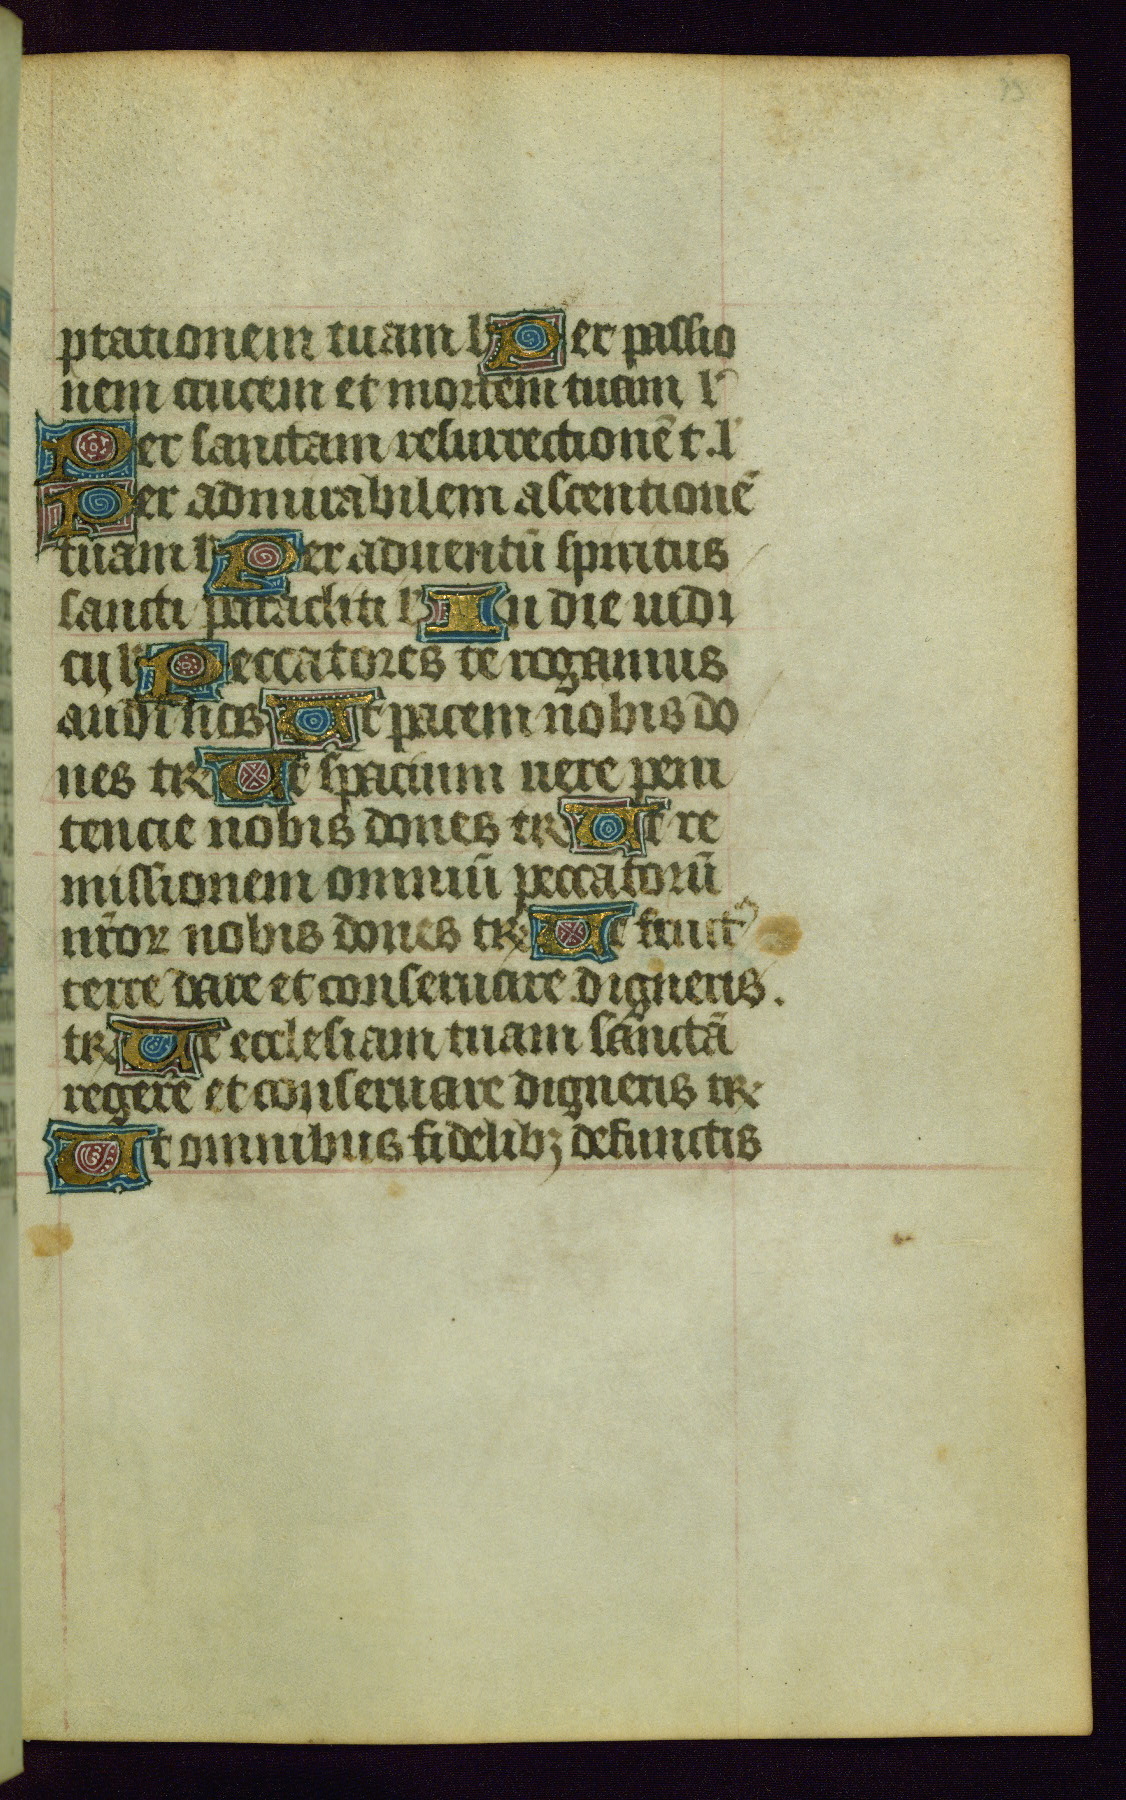 ptationem tuam l' Per passio
nem crucem et mortem tuam l'
Per sanctam resurrectionē t. l'
Per admirabilem ascentionē
tuam l' Per aduentū spiritus
sancti paracliti l' In die iudi
cij l' Peccatores te rogamus
audi nos Ut pacem nobis do
nes tr Ut spacium uere peni
tencie nobis dones tr Ut re
missionem omniū peccatorū
nr̄or nobis dones tr Ut fruct9
terre dare et conseruare digneris.
tr Ut ecclesiam tuam sanctā
regere et conseruare digneris tr
Ut omnibus fidelibꝫ defunctis